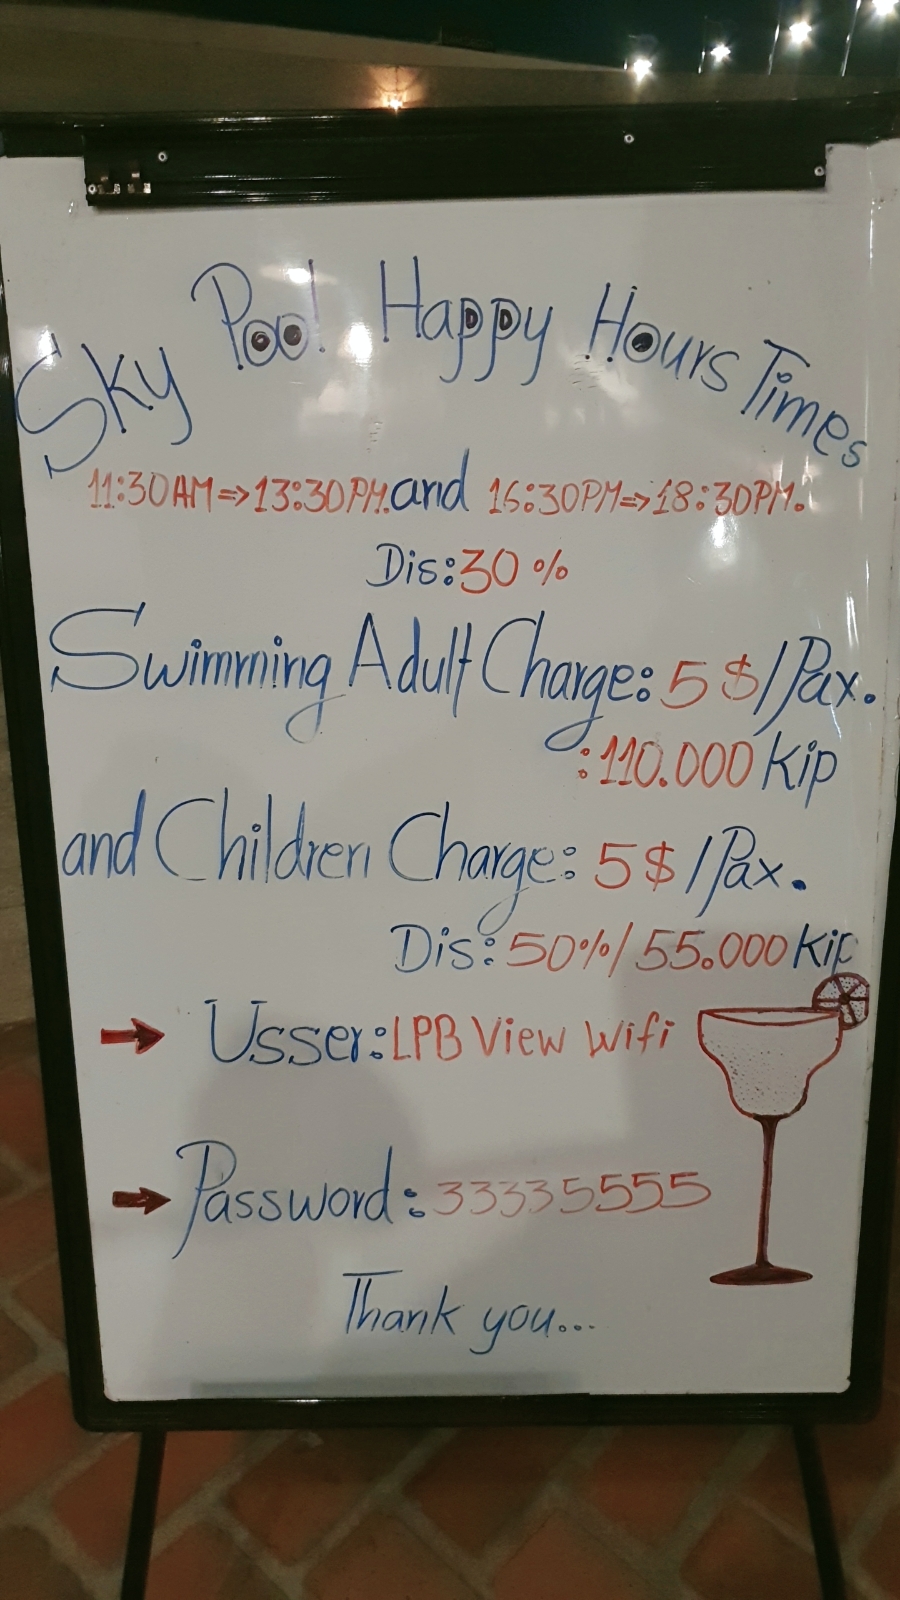 Sky Pool Happy Hours Times
11:30AM⇒13:30PM. and 16:30PM⇒18:30PM.
Dis:30 %
Swimming Adult Charge: 5 $/Pax.
:110.000 Kip
and Children Charge: 5$/Pax.
Dis: 50%/55.000 Kip
➡ Usser: LPB View Wifi
➡ Password: 33335555
Thank you...